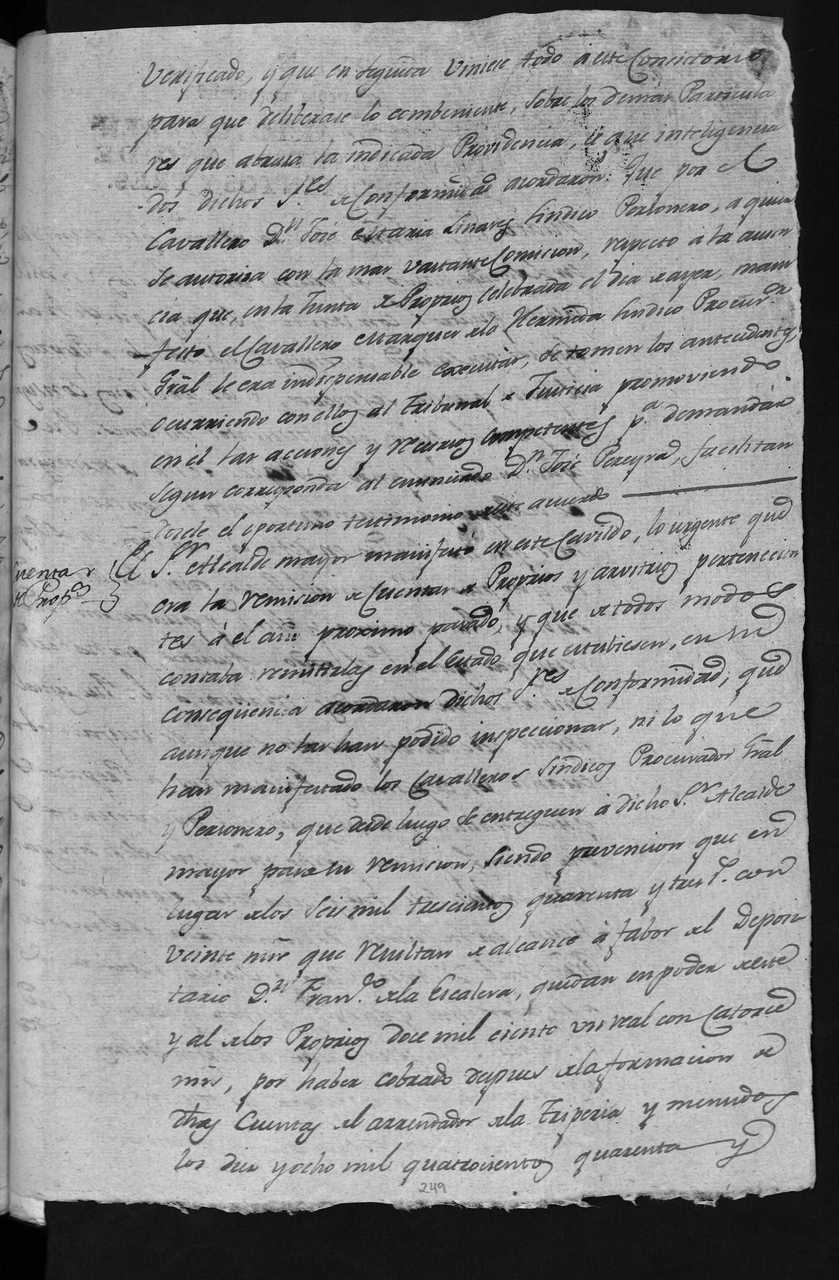 Verificado, y que en seguida viniese todo á este Consistorio
para que deliberase lo combeniente, sobre los demas Particula
res que abraza la indicada Providencia, de que inteligencia
dos dichos S.res de Conformidad acordaron: Que por el
Cavallero D.n José Maria Linares Sindico Personero, a quien
se autoriza con la mas vastante Comicion, respeto á la ausen
cia que, en la Junta de Proprios celebrada el dia de ayer, mani
festo el Cavallero Marques de la Hermida Sindico Procur.or
Gral le era indispensable executar, se tomen los antecedentes,
ocurriendo con ellos al Tribunal de Justicia promoviendo
en el las acciones y recursos competentes p.a demandar
segun corresponda al enunciado D.n José Pereyra, facilitan
dosele el oportuno testimonio de este acuerdo
Cuentas
de Prop.s
El S.r Alcalde mayor manifesto en este Cavildo, lo urgente que
era la remision de Cuentas de Proprios y arvitrios pertenecien
tes á el año proximo pasado, y que de todos modos
contaba remitirlas en el Estado que estubiesen, en su
conseqüencia acordaron dichos S.res de Conformidad, que
aunque no las han podido inspeccionar, ni lo que
han manifestado los Cavalleros Sindicos Procurador Gral
y Personero, que desde luego se entreguen á dicho S.r Alcalde
mayor para su remision, siendo prevencion que en
lugar de los seis mil trescientos quarenta y tres r.s con
veinte mrs que resultan de alcance á fabor del Deposi
tario D.n Fran.co de la Escalera, quedan en poder de este
y al de los Proprios doce mil ciento un real con catorce
mrs, por haber cobrado despues de la formacion de
dhas Cuentas del arrendador de la Triperia y menudos
los diez y ocho mil quatrocientos quarenta y
249